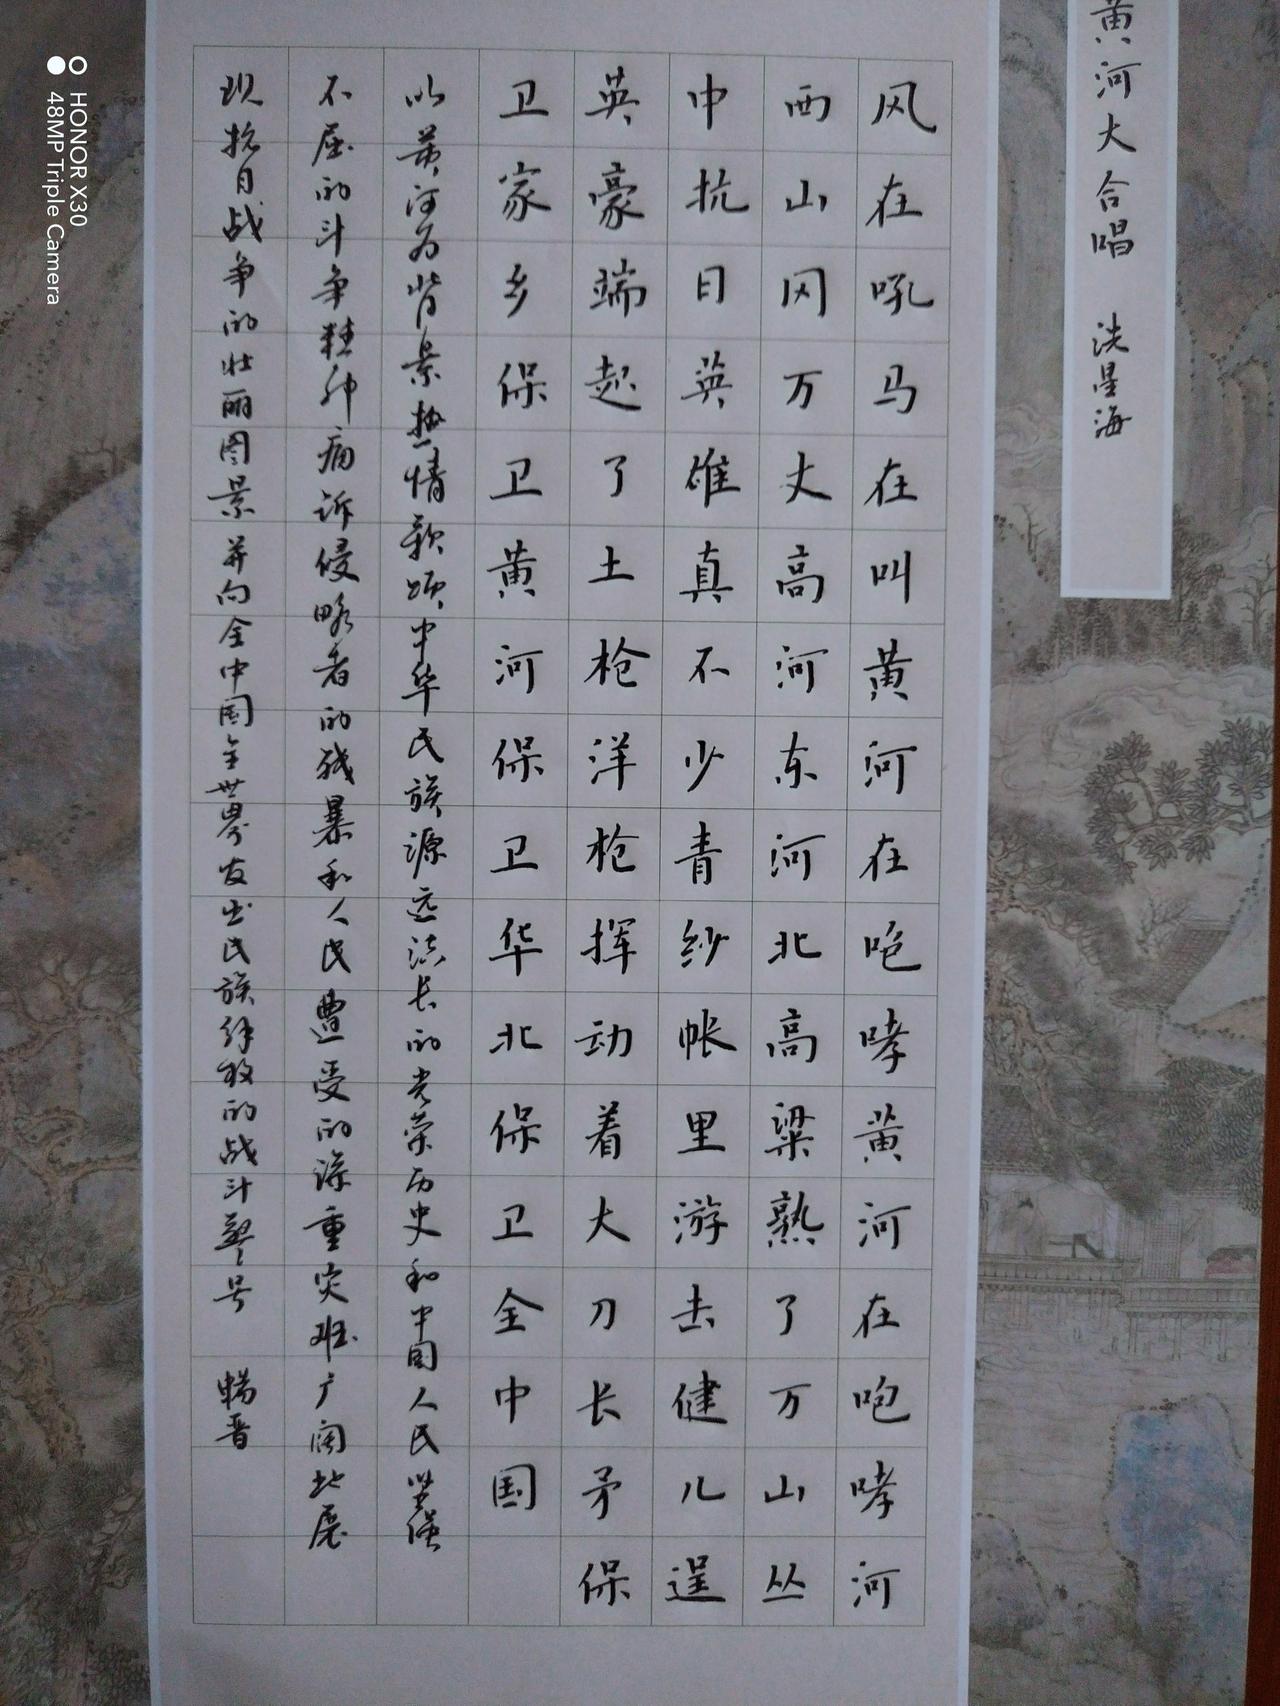 黄河大合唱 冼星海
风在吼马在叫黄河在咆哮黄河在咆哮河
西山冈万丈高河东河北高粱熟了万山丛
中抗日英雄真不少青纱帐里游击健儿逞
英豪端起了土枪洋枪挥动着大刀长矛保
卫家乡保卫黄河保卫华北保卫全中国
以黄河为背景热情歌颂中华民族源远流长的光荣历史和中国人民坚强
不屈的斗争精神痛诉侵略者的残暴和人民遭受的深重灾难广阔地展
现抗日战争的壮丽图景并向全中国全世界发出民族解放的战斗警号 畅晋
HONOR X30
48MP Triple Camera